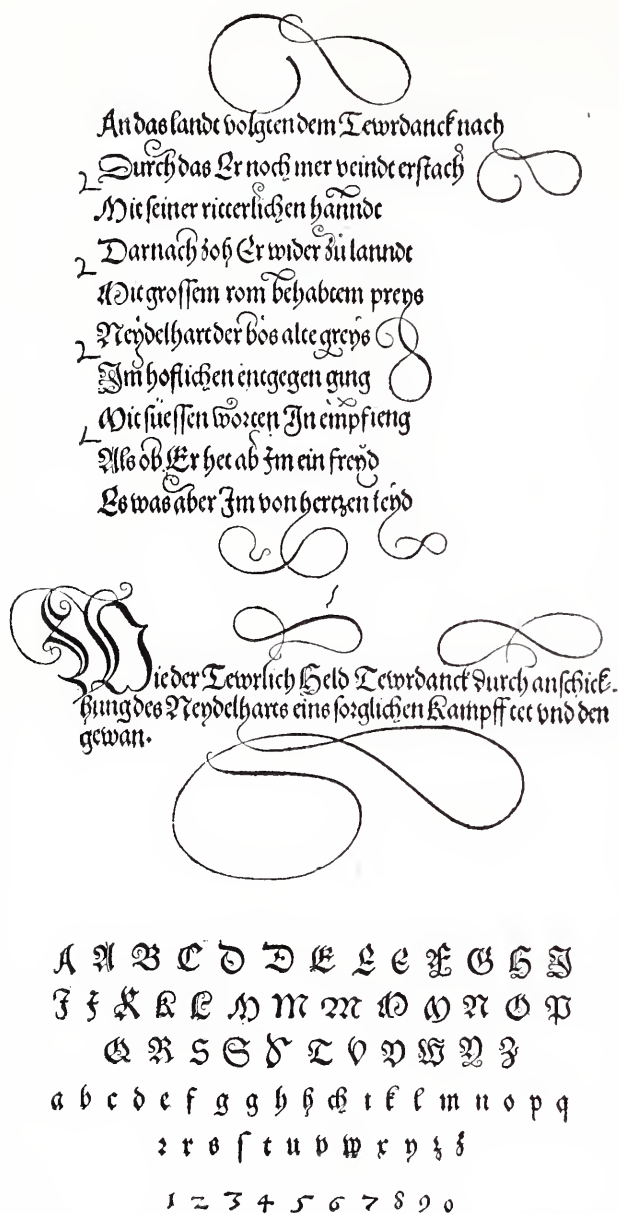 An das landt volgten dem Tewrdanck nach
Durch das Er noch mer veindt erstach
Mit seiner ritterlichen hanndt
Darnach zoh Er wider zů lanndt
Mit grossem rom behabtem preys
Neydelhart der bös alte greys
Im hoflichen entgegen ging
Mit süessen worten In empfieng
Als ob Er het ab Im ein freyd
Es was aber Im von hertzen leyd
Wie der Tewrlich Held Tewrdanck durch anschick-
hung des Neydelharts eins sorglichen Kampff tet vnd den
gewan.
A A B C D D E E E E G H I
J J K K L M M M M M N O P
Q R S S T T V V W Y Z
a b c d e f g g h h ch i k l m n o p q
r r s ſ t u v w x y z z
1 2 3 4 5 6 7 8 9 0